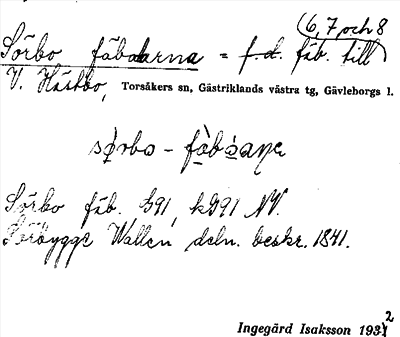 (6, 7, och 8
Sörbo fäbodarna = f.d. fäb. till)
V. Hästbo, Torsåkers sn, Gästriklands västra tg, Gävleborgs l.
Sörbo fäb. G91, kG91 NV.
Sörbygge Wallen deln. beskr. 1841.
Ingegärd Isaksson 1932